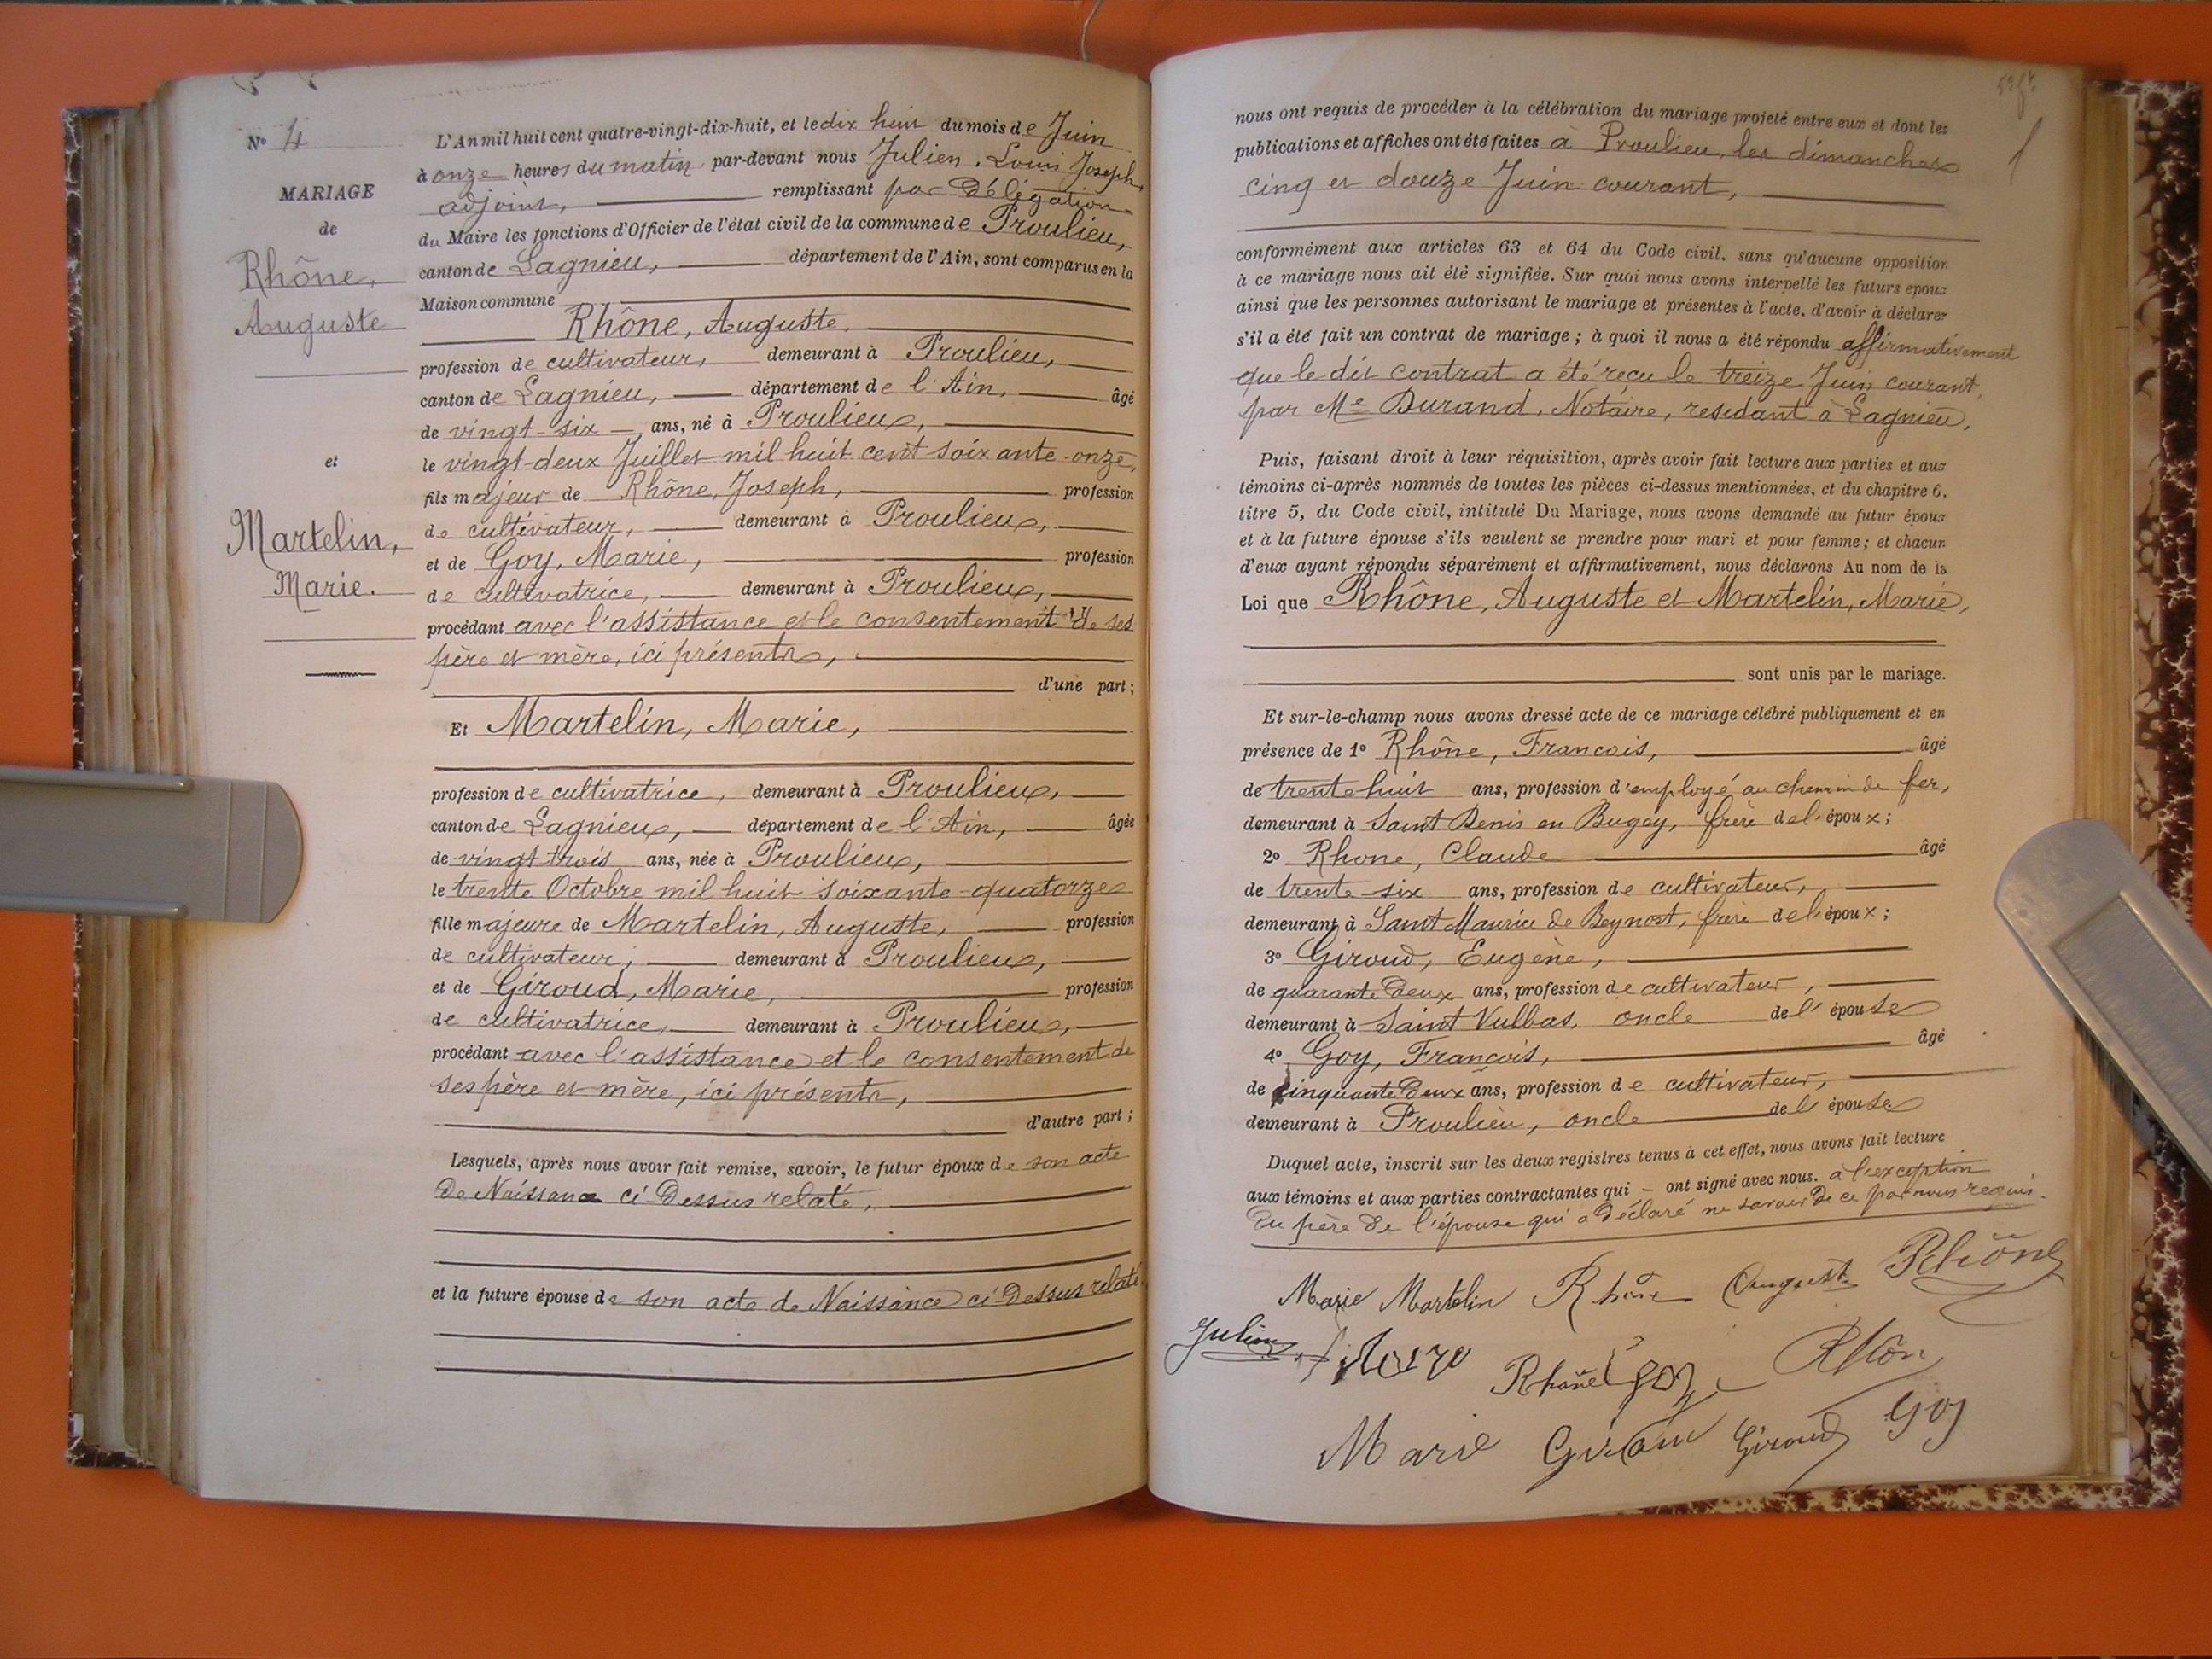 N° 4
MARIAGE
de
Rhône,
Auguste
et
Martelin,
Marie.
L'An mil huit cent quatre-vingt-dix-huit, et le dix huit du mois de Juin
à onze heures du matin par-devant nous Julien, Louis Joseph,
adjoint, remplissant par Délégation
du Maire les fonctions d'Officier de l'état civil de la commune de Proulieu,
canton de Lagnieu, département de l'Ain, sont comparus en la
Maison commune
Rhône, Auguste,
profession de cultivateur, demeurant à Proulieu,
canton de Lagnieu, département de l'Ain, âgé
de vingt-six ans, né à Proulieu,
le vingt-deux Juillet mil huit cent soixante-onze,
fils majeur de Rhône, Joseph, profession
de cultivateur, demeurant à Proulieu,
et de Goy, Marie, profession
de cultivatrice, demeurant à Proulieu,
procédant avec l'assistance et le consentement de ses
père et mère, ici présents,
d'une part;
Et Martelin, Marie,
profession de cultivatrice, demeurant à Proulieu,
canton de Lagnieu, département de l'Ain, âgée
de vingt trois ans, née à Proulieu,
le trente Octobre mil huit soixante-quatorze
fille majeure de Martelin, Auguste, profession
de cultivateur, demeurant à Proulieu,
et de Giroud, Marie, profession
de cultivatrice, demeurant à Proulieu,
procédant avec l'assistance et le consentement de
ses père et mère, ici présents,
d'autre part;
Lesquels, après nous avoir fait remise, savoir, le futur époux de son acte
De Naissance ci-Dessus relaté,
et la future épouse de son acte de Naissance ci-Dessus relaté
nous ont requis de procéder à la célébration du mariage projeté entre eux et dont les
publications et affiches ont été faites à Proulieu, les dimanches
cinq et douze Juin courant,
conformément aux articles 63 et 64 du Code civil. sans qu'aucune opposition
à ce mariage nous ait été signifiée. Sur quoi nous avons interpellé les futurs époux
ainsi que les personnes autorisant le mariage et présentes à l'acte. d'avoir à déclarer
s'il a été fait un contrat de mariage; à quoi il nous a été répondu affirmativement
que le dit contrat a été reçu le treize Juin courant,
par Me Durand, Notaire, residant à Lagnieu,
Puis, faisant droit à leur réquisition, après avoir fait lecture aux parties et aux
témoins ci-après nommés de toutes les pièces ci-dessus mentionnées, et du chapitre 6,
titre 5, du Code civil, intitulé Du Mariage, nous avons demandé au futur époux
et à la future épouse s'ils veulent se prendre pour mari et pour femme; et chacun
d'eux ayant répondu séparément et affirmativement, nous déclarons Au nom de la
Loi que Rhône, Auguste et Martelin, Marie,
sont unis par le mariage.
Et sur-le-champ nous avons dressé acte de ce mariage célébré publiquement et en
présence de 1° Rhône, Francois, âgé
de trente huit ans, profession d'employé au chemin de fer,
demeurant à Saint Denis en Bugey, frère de l'époux;
2° Rhone, Claude âgé
de trente-six ans, profession de cultivateur,
demeurant à Saint Maurice de Beynost, frère de l'époux;
3° Giroud, Eugène,
de quarante Deux ans, profession de cultivateur,
demeurant à Saint Vulbas, oncle de l'épouse
4° Goy, François, âgé
de cinquante Deux ans, profession de cultivateur,
demeurant à Proulieu, oncle de l'épouse
Duquel acte, inscrit sur les deux registres tenus à cet effet, nous avons fait lecture
aux témoins et aux parties contractantes qui ont signé avec nous. à l'exception
Du père De l'épouse qui a Déclaré ne savoir De ce par nous requis.
Marie Martelin Rhône Auguste Rhône
Julien
Rhône Goy Rhôn
Marie Giroud Giroud Goy